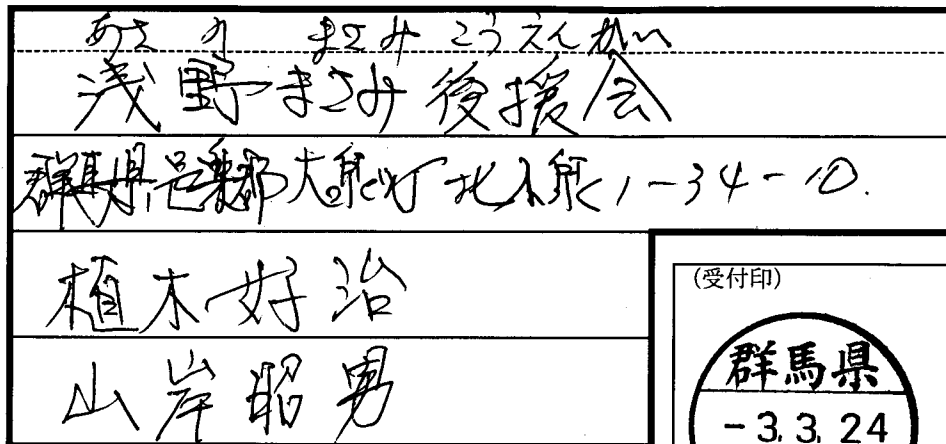 あさの まさみ こうえんかい
浅野まさみ後援会
群馬県邑楽郡大泉町北小泉1-34-10.
植木好治
山岸昭男
(受付印)
群馬県
-3.3.24